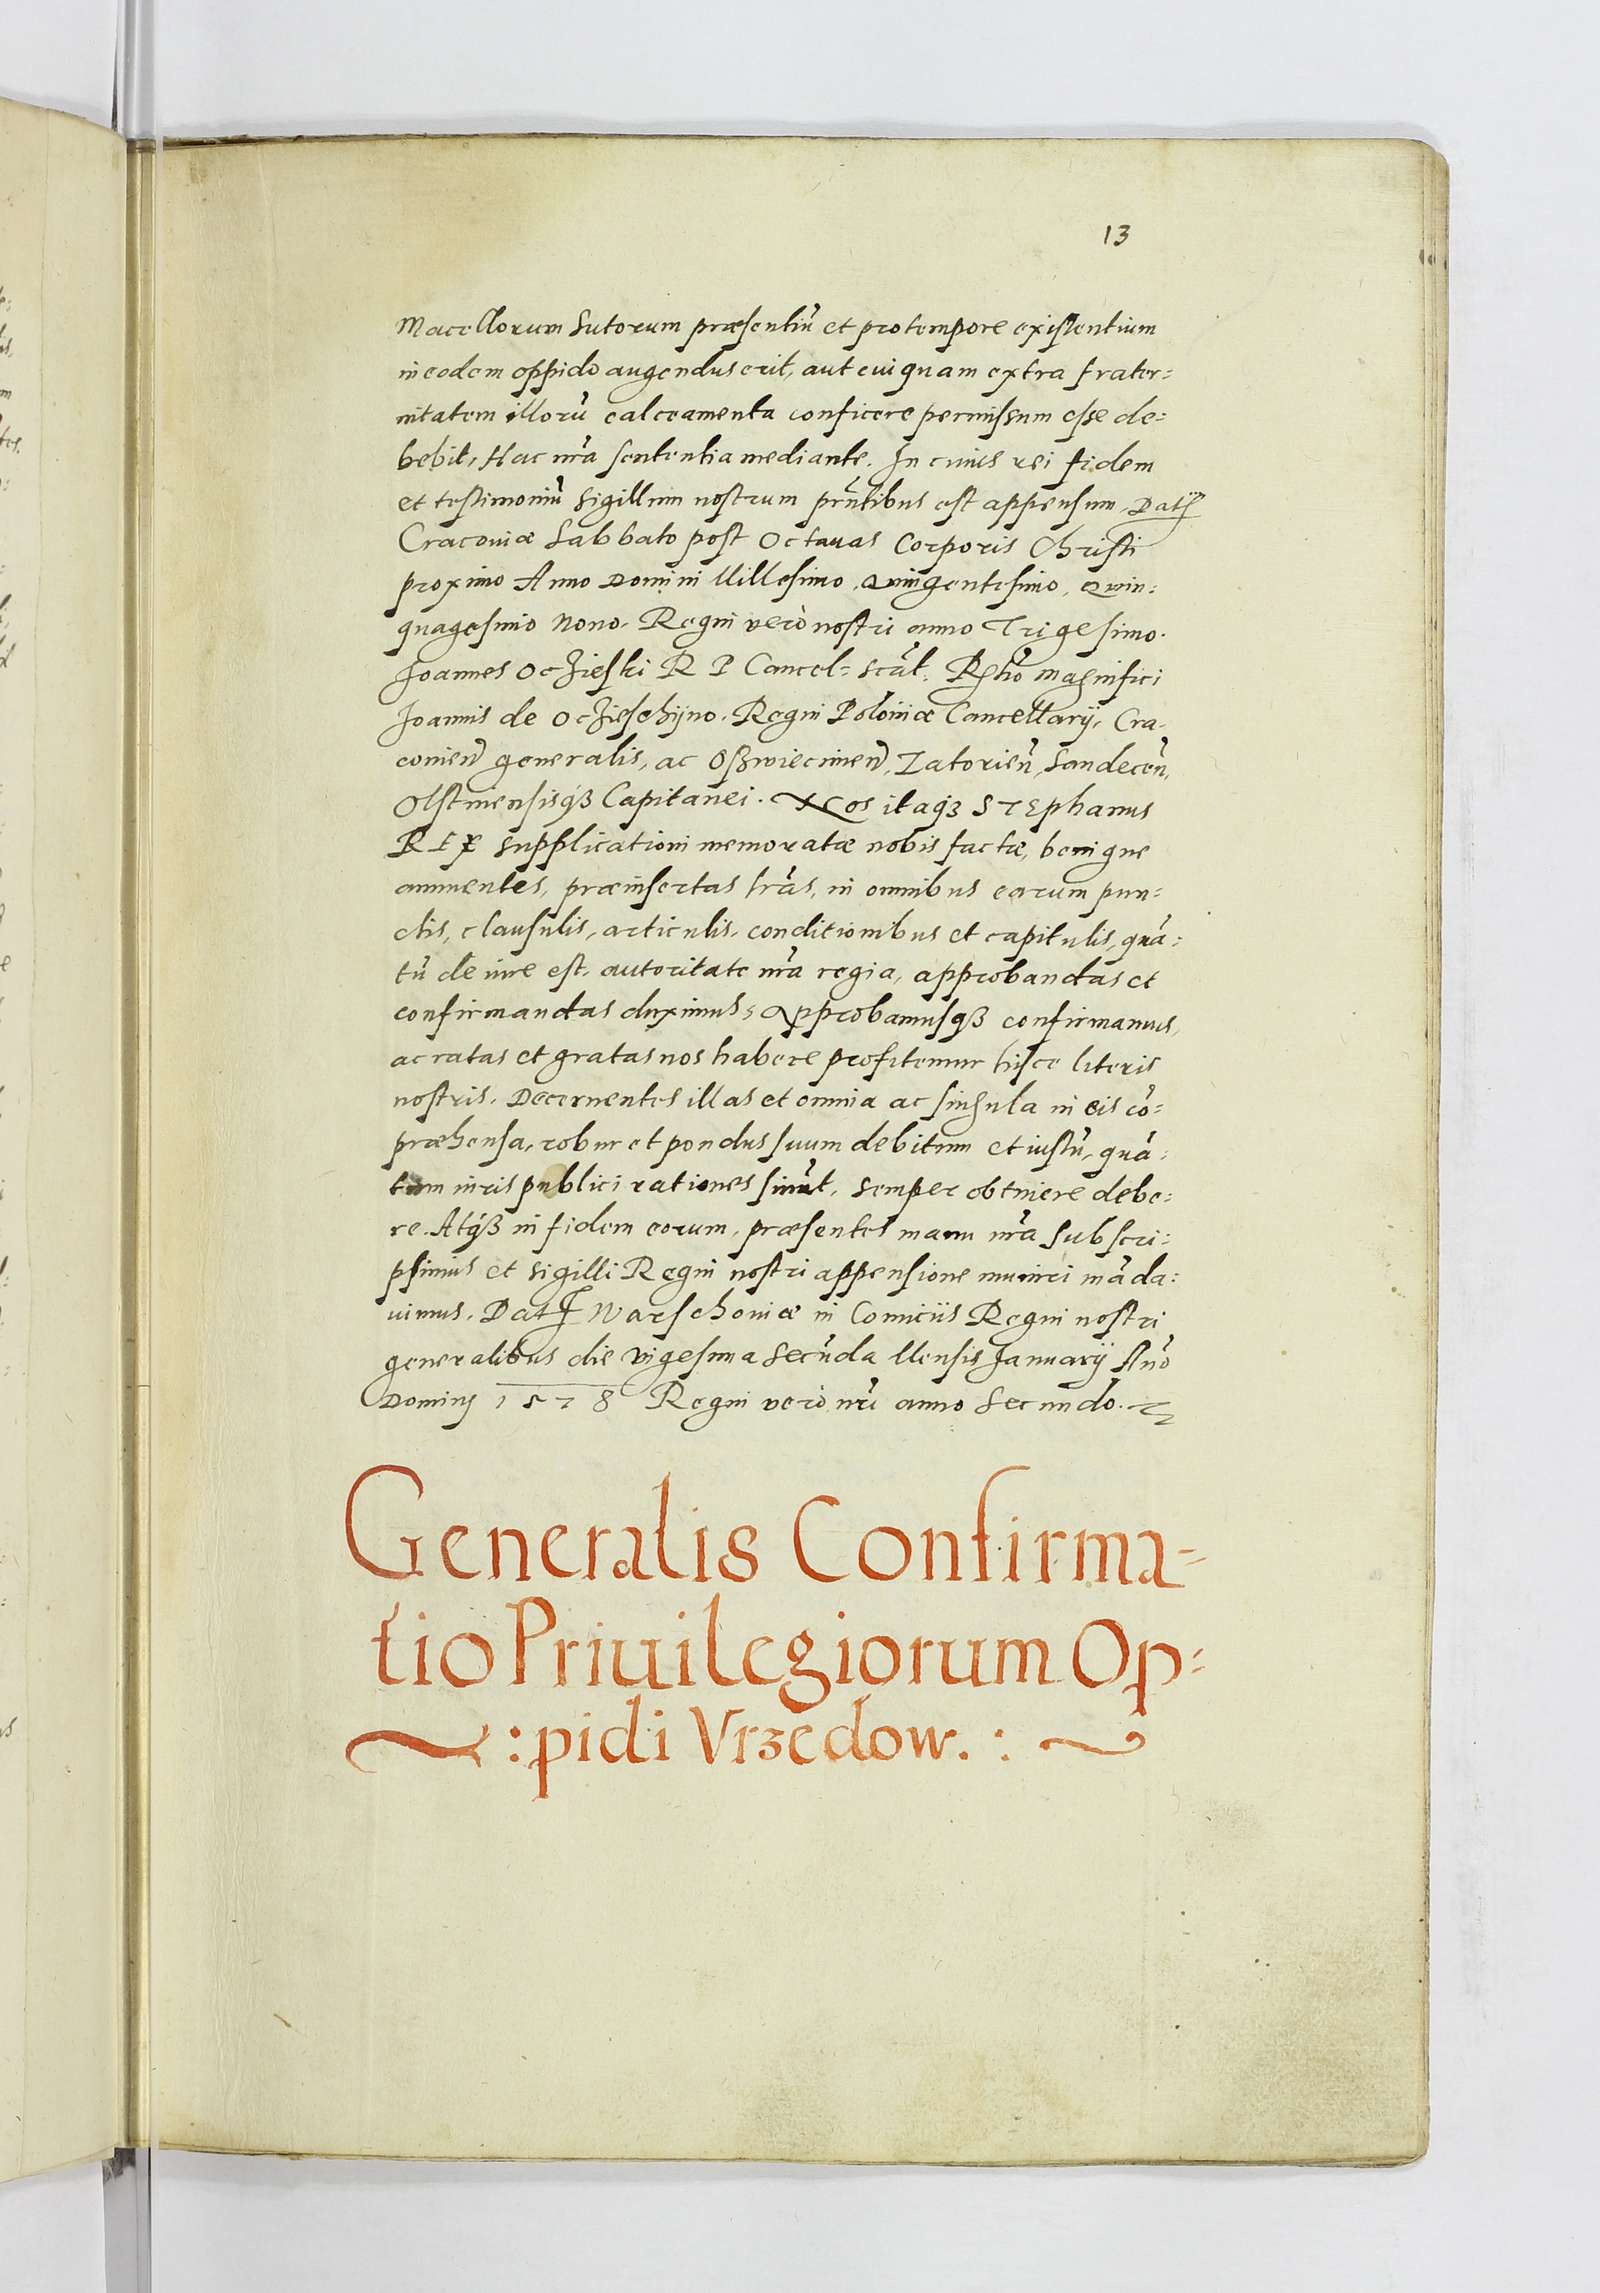 13
Macellorum Sutorum præsentiū et pro tempore existentium
in eodem oppido augendus erit, aut cuiquam extra frater=
nitatem illorū calceamenta conficere permissum esse de=
bebit, Hac nrā sententia mediante. In cuius rei fidem
et testimoniū Sigillum nostrum prñtibus est appensum. Datħ
Cracoviæ Sabbato post Octauas Corporis Christi
proximo Anno Domini Millesimo, Quingentesimo, Quin=
quagesimo Nono. Regni verò nostri anno Trigesimo.
Joannes Oczieski R P Cancel= scāt. Rtio magnifici
Joannis de Oczieschijno. Regni Poloniæ Cancellarij, Cra-
covień generalis, ac Oßwiecimeñ, Zatorieñ, Sandeceñ,
Olstinensisqꝫ Capitanei. Nos itaqꝫ STEphanus
REX supplicationi memoratæ nobis factæ, benigne
annuentes, præinsertas lrās, in omnibus earum pun=
ctis, clausulis, articulis, conditionibus et capitulis, quā=
tū de iure est, autoritate nrā regia, approbandas et
confirmandas duximus, Approbamusqꝫ confirmamus,
ac ratas et gratas nos habere profitemur hisce literis
nostris. Decernentes illas et omnia ac singula in eis cō=
præhensa, robur et pondus suum debitum et iustū, quā=
tum iuris publici rationes sinūt, semper obtinere debe=
re. Atqꝫ in fidem eorum, præsentes manu nrā subscri=
psimus et sigilli Regni nostri appensione muniri māda=
uimus. Datħ Warschoviæ in Comiciis Regni nostri
generalibus die vigesima Secūda Mensis Januarij Año
Dominj 1578 Regni verò nrī anno Secundo.
Generalis Confirma-
tio Priuilegiorum Op=
:pidi Vrzedow. :